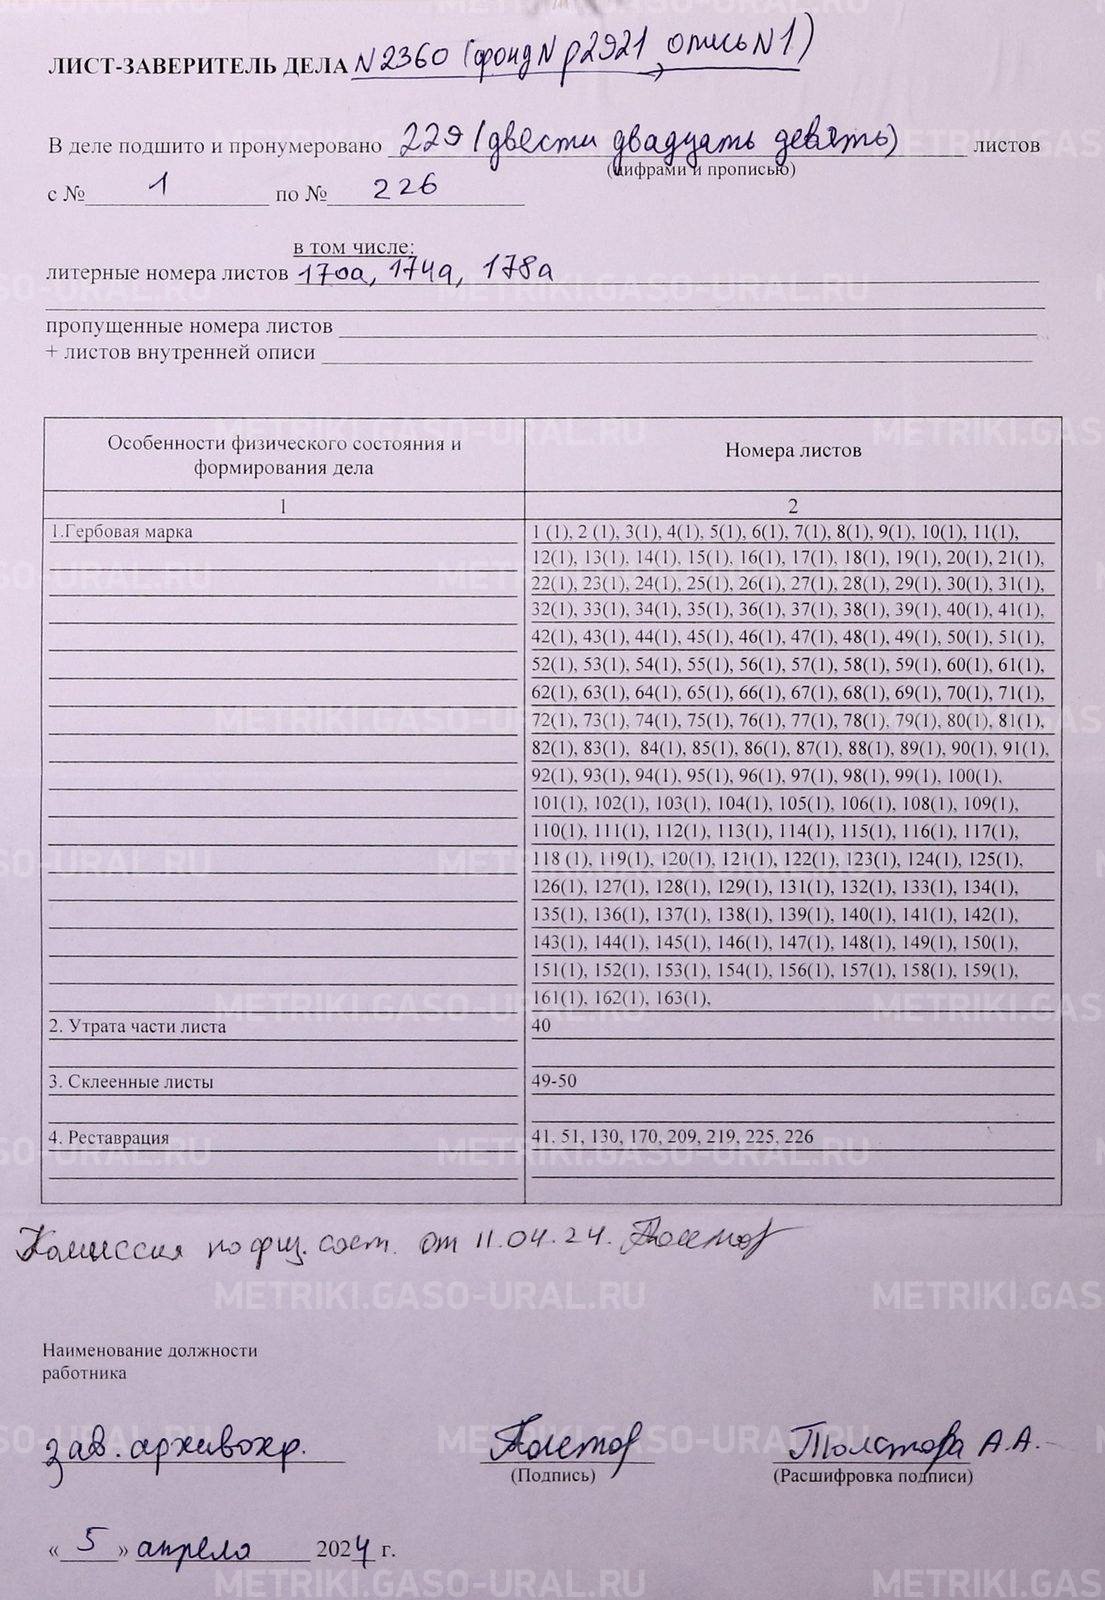 ЛИСТ-ЗАВЕРИТЕЛЬ ДЕЛА N2360 (фонд N р2921, опись N1)
В деле подшито и пронумеровано 229 (двести двадцать девять) листов
(цифрами и прописью)
с № 1 по № 226
в том числе:
литерные номера листов 170а, 174а, 178а
пропущенные номера листов
+ листов внутренней описи
Особенности физического состояния и
формирования дела
Номера листов
1
2
1.Гербовая марка
1 (1), 2 (1), 3(1), 4(1), 5(1), 6(1), 7(1), 8(1), 9(1), 10(1), 11(1),
12(1), 13(1), 14(1), 15(1), 16(1), 17(1), 18(1), 19(1), 20(1), 21(1),
22(1), 23(1), 24(1), 25(1), 26(1), 27(1), 28(1), 29(1), 30(1), 31(1),
32(1), 33(1), 34(1), 35(1), 36(1), 37(1), 38(1), 39(1), 40(1), 41(1),
42(1), 43(1), 44(1), 45(1), 46(1), 47(1), 48(1), 49(1), 50(1), 51(1),
52(1), 53(1), 54(1), 55(1), 56(1), 57(1), 58(1), 59(1), 60(1), 61(1),
62(1), 63(1), 64(1), 65(1), 66(1), 67(1), 68(1), 69(1), 70(1), 71(1),
72(1), 73(1), 74(1), 75(1), 76(1), 77(1), 78(1), 79(1), 80(1), 81(1),
82(1), 83(1), 84(1), 85(1), 86(1), 87(1), 88(1), 89(1), 90(1), 91(1),
92(1), 93(1), 94(1), 95(1), 96(1), 97(1), 98(1), 99(1), 100(1),
101(1), 102(1), 103(1), 104(1), 105(1), 106(1), 108(1), 109(1),
110(1), 111(1), 112(1), 113(1), 114(1), 115(1), 116(1), 117(1),
118 (1), 119(1), 120(1), 121(1), 122(1), 123(1), 124(1), 125(1),
126(1), 127(1), 128(1), 129(1), 131(1), 132(1), 133(1), 134(1),
135(1), 136(1), 137(1), 138(1), 139(1), 140(1), 141(1), 142(1),
143(1), 144(1), 145(1), 146(1), 147(1), 148(1), 149(1), 150(1),
151(1), 152(1), 153(1), 154(1), 156(1), 157(1), 158(1), 159(1),
161(1), 162(1), 163(1),
2. Утрата части листа 40
3. Склеенные листы 49-50
4. Реставрация 41, 51, 130, 170, 209, 219, 225, 226
Комиссия по физ. сост. от 11.04.24.
Наименование должности
работника
зав. архивохр. Толстова А.А.
(Подпись) (Расшифровка подписи)
« 5 » апреля 2024 г.
METRIKI.GASO-URAL.RU